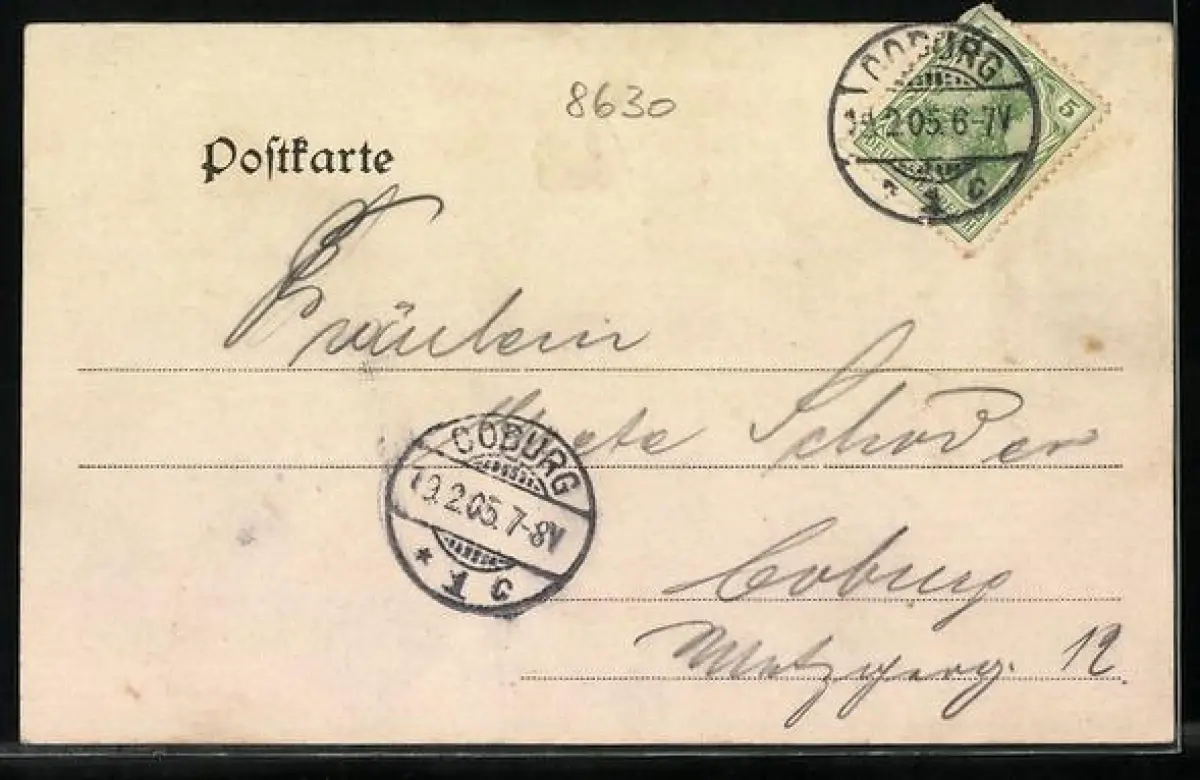 8630
COBURG
19.2.05.6-7V
* 1 c
5
Postkarte
Fräulein
Schoder
COBURG
19.2.05.7-8V
* 1 c
Coburg
Metzgerg. 12.